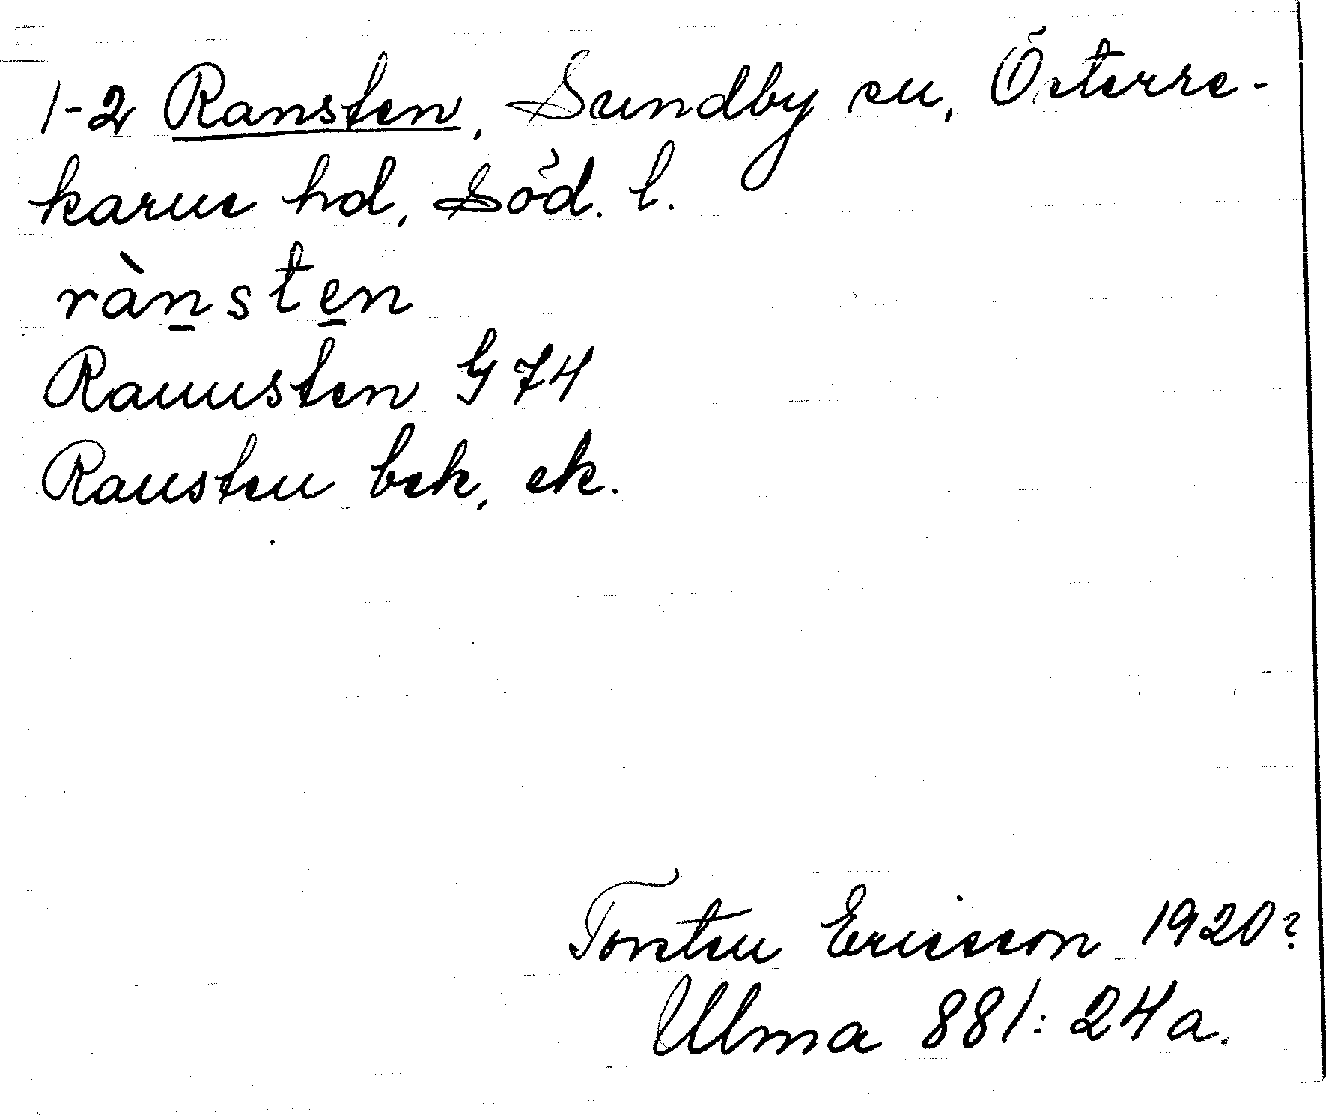 1-2 Ransten, Sundby sn, Österre-
karne hd, Söd. l.
ràn̲ste̲n
Rannsten G 74
Ransten bek, ek.
Torsten Ericsson 1920?
Ulma 881: 24a.